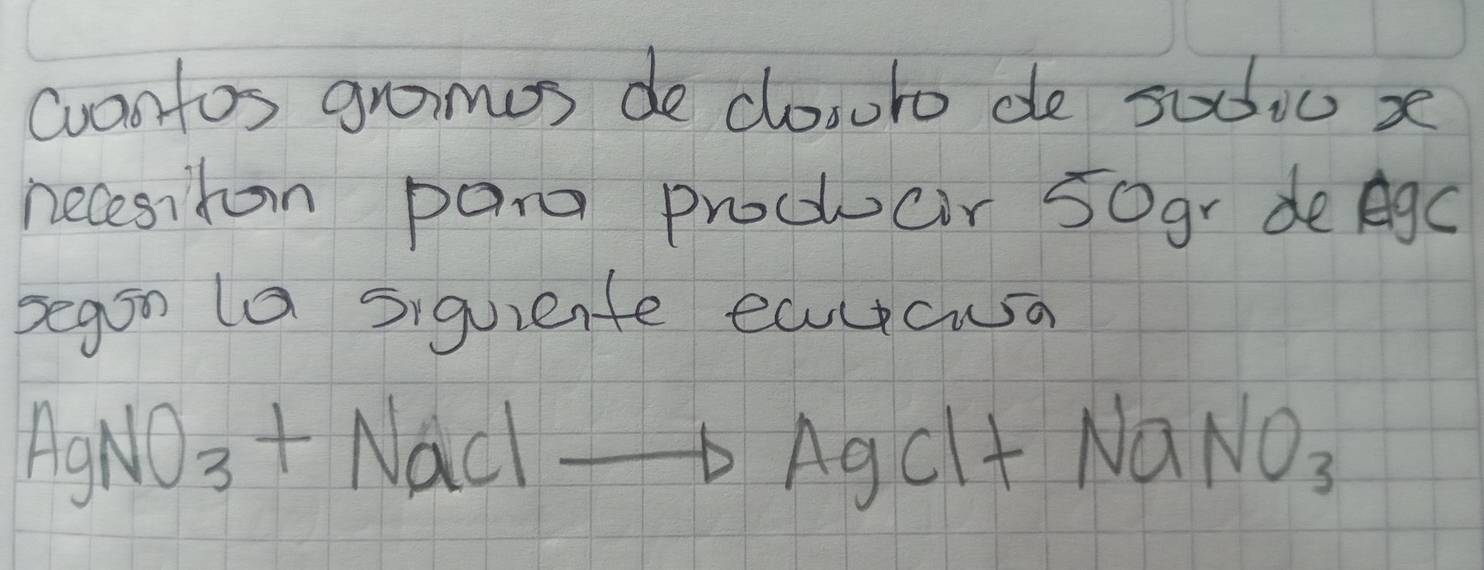 cuantos gramos de cloruro de sodio se
necesitan para producir 50gr de AgC
según la siguiente ecuación
AgNO₃ + NaCl → AgCl + NaNO₃